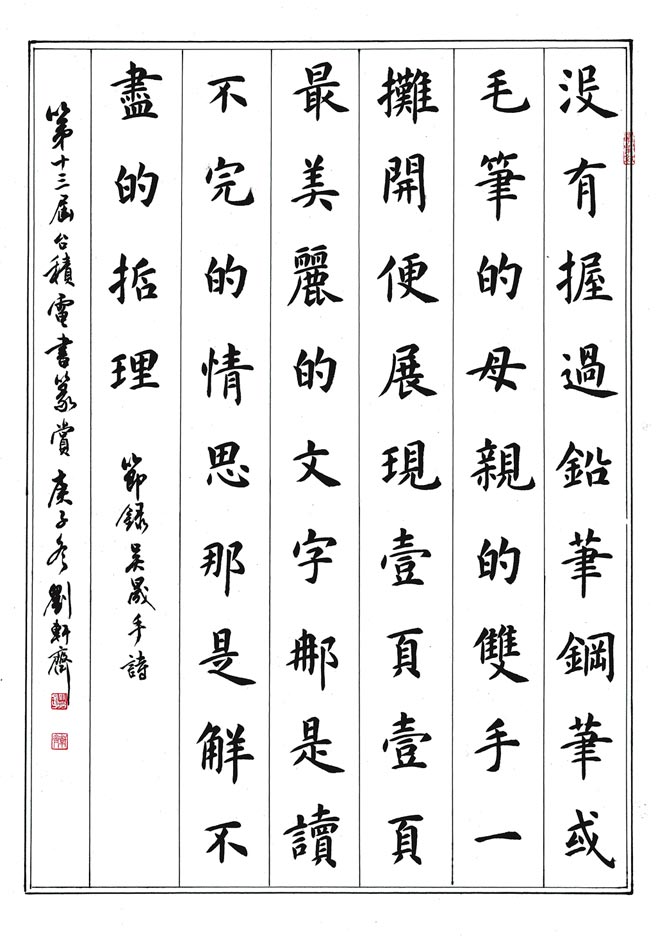 沒有握過鉛筆鋼筆或
毛筆的母親的雙手一
攤開便展現壹頁壹頁
最美麗的文字那是讀
不完的情思那是解不
盡的哲理
節錄吳晟手詩
第十三屆台積電書篆賞 庚子冬 劉軒齊